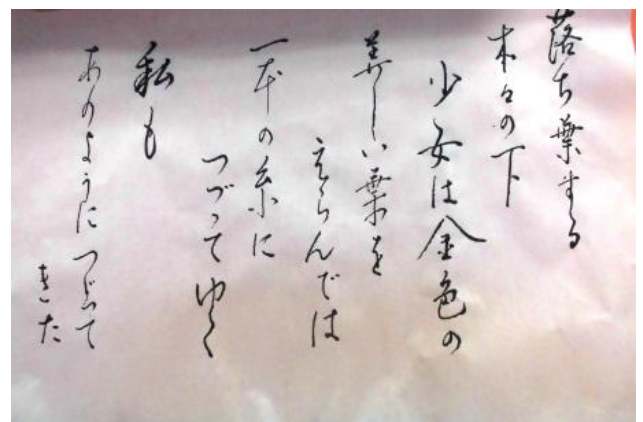 落ち葉する
木々の下
少女は金色の
美しい葉を
えらんでは
一本の糸に
つづって ゆく
私も
あのように つづって
きた